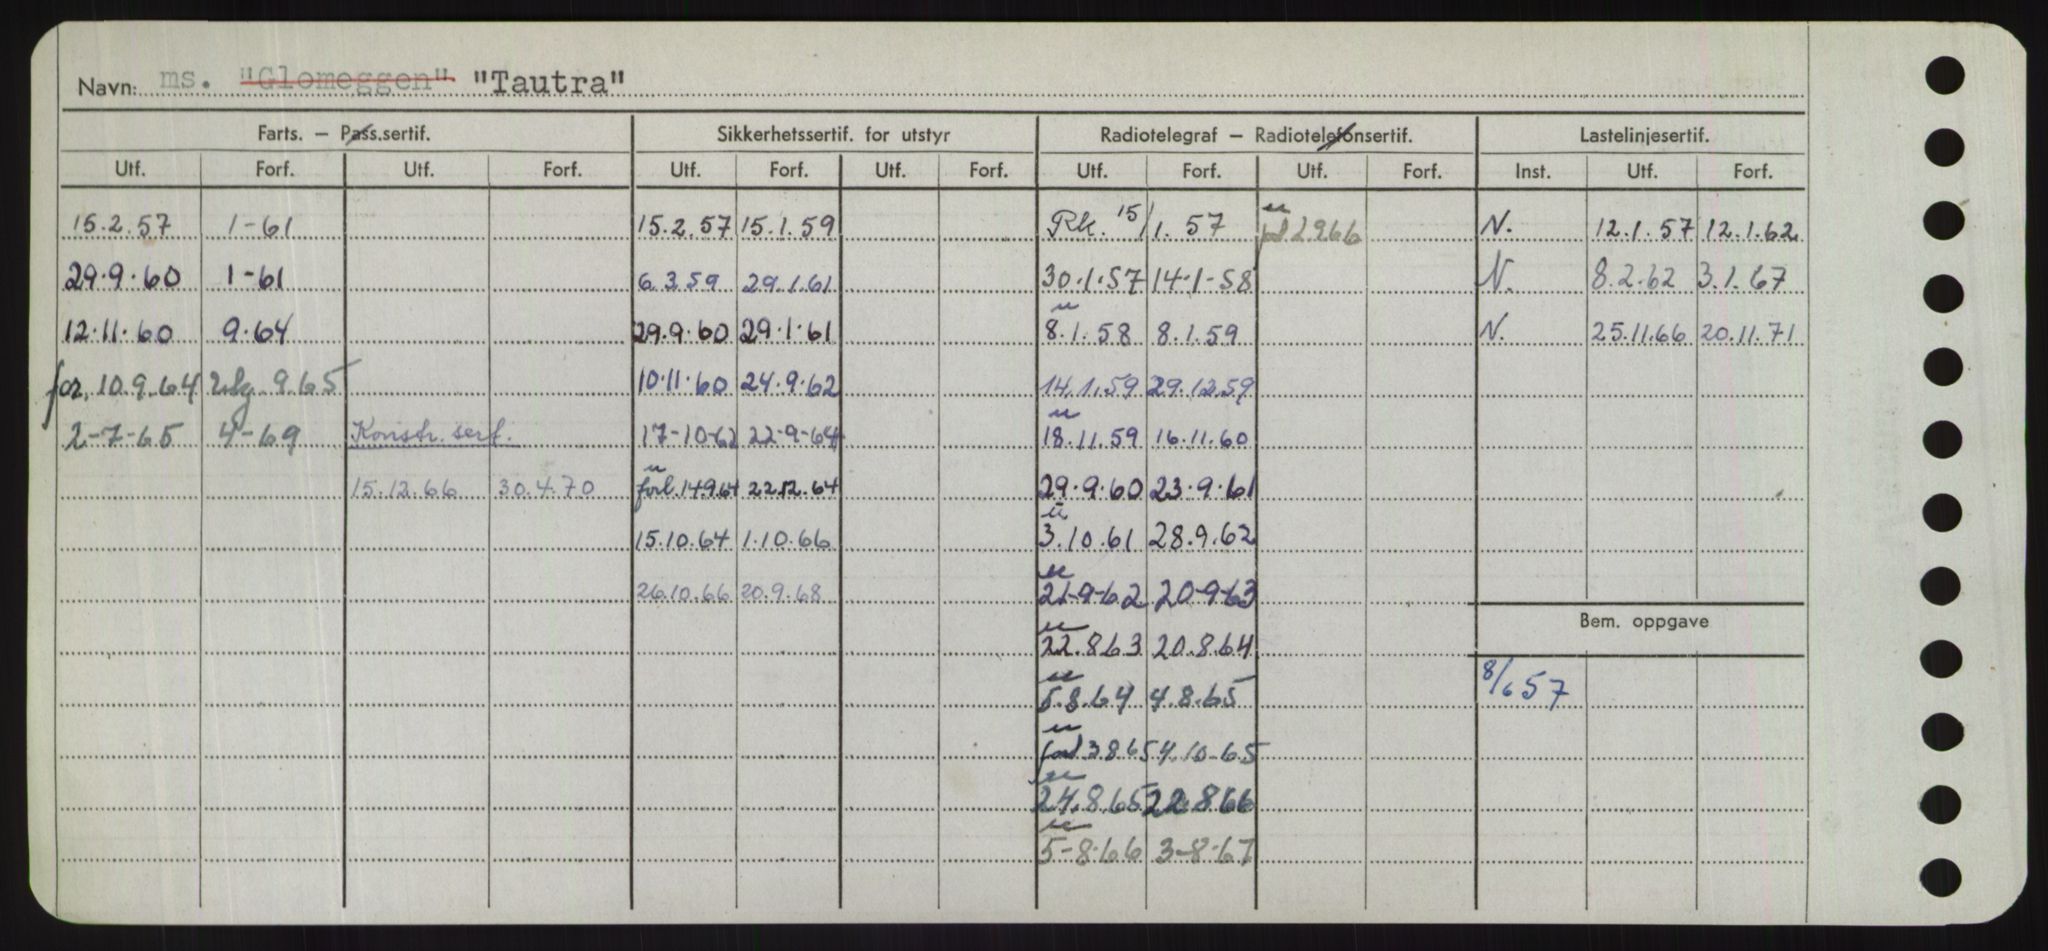 Navn: ms. "Glomeggen" "Tautra"
Farts. — Pass.sertif. Sikkerhetssertif. for utstyr Radiotelegraf — Radiotelefonsertif. Lastelinjesertif.
Utf. Forf. Utf. Forf. Utf. Forf. Utf. Forf. Utf. Forf. Utf. Forf. Inst. Utf. Forf.
15.2.57 1-61 15.2.57 15.1.59 Rk. 15/1.57 2966 N. 12.1.57 12.1.62
29.9.60 1-61 6.3.59 29.1.61 30.1.57 14.1-58 N. 8.2.62 3.1.67
12.11.60 9.64 29.9.60 29.1.61 8.1.58 8.1.59 N. 25.11.66 20.11.71
for. 10.9.64 9.65 10.11.60 24.9.62 14.1.59 29.12.59
2-7-65 4-69 Konstr. sert. 17-10-62 22-9-64 18.11.59 16.11.60
15.12.66 30.4.70 forl. 14.9.64 22.12.64 29.9.60 23.9.61
15.10.64 1.10.66 3.10.61 28.9.62
26.10.66 20.9.68 21-9-62 20-9-63
Bem. oppgave
22.8.63 20.8.64
8/6 57
5.8.64 4.8.65
3.8.65 4.10-65
24.8.65 22.8.66
5-8.66 3-8.67